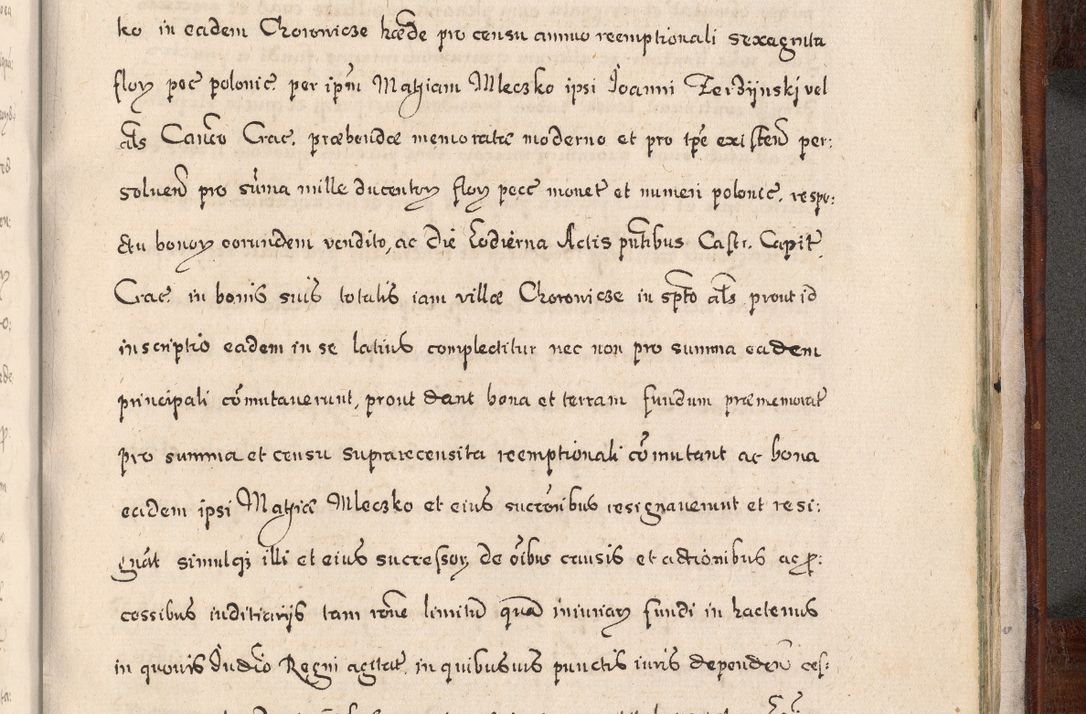 ko in eadem Choronicze hæde pro censu annuo reemptionali sexaginta
floŋ pec polonic. per ipm Mathiam Mleczko ipsi Joanni Zerdzijnski vel
als Canco Crac. præbendæ memoratæ moderno et pro tpe existen per:
soluen pro suma mille ducentoŋ floŋ pecc monet et numeri polonic. respe:
ctu bonoŋ eorundem vendito, ac die hodierna Actis pntibus Castr. Capit.
Crac. in bonis suis totalis iam villæ Choronicze in spto als prout id
inscriptio eadem in se latius complectitur nec non pro summa eadem
principali comutauerunt, prout dant bona et terram fundum præmemorat
pro summa et censu suprarecensita reemptionali comutant ac bona
eadem ipsi Mathiæ Mleczko et eius succoribus resignauerunt et resi:
gnat simulq3 illi et eius successoŋ de oibus causis et actionibus ac p:
cessibus iuditiarijs tam rone limitu qua iniuriaŋ fundi in hactenus
in quouis Judicio Regni agitat in quibusuis punctis iuris dependen ces: